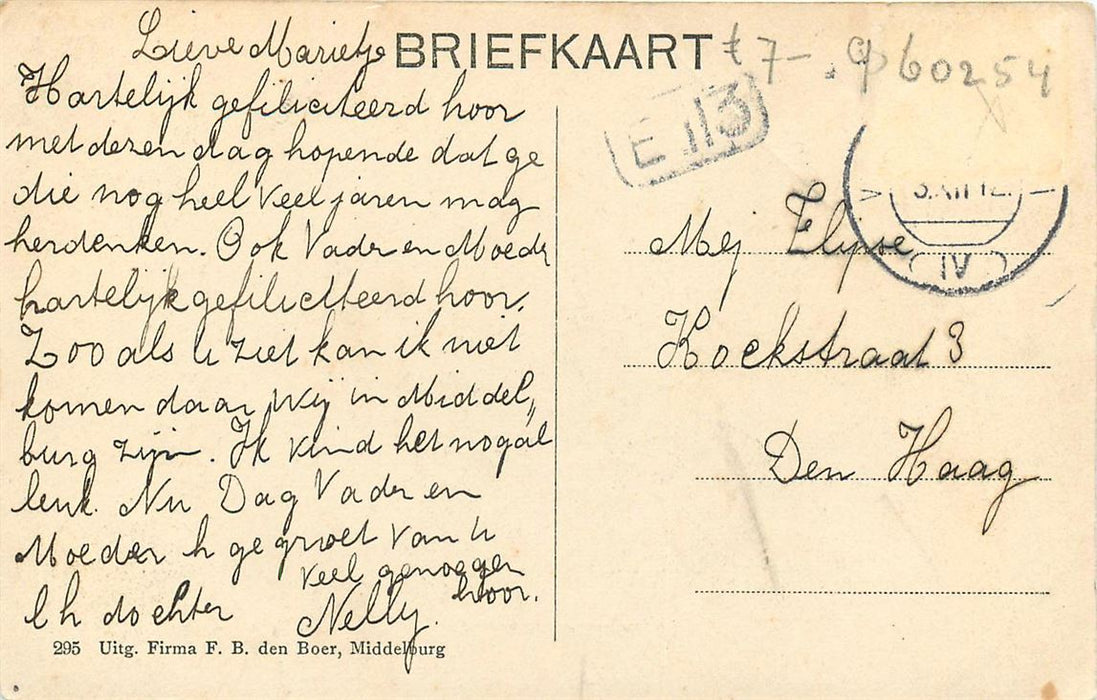 Lieve Marietje
Hartelijk gefiliciteerd hoor
met dezen dag hopende dat ge
die nog heel veel jaren mag
herdenken. Ook Vader en Moeder
hartelijk gefiliciteerd hoor.
Zooals U ziet kan ik niet
komen daar wij in Middel„
burg zijn. Ik vind het nogal
leuk. Nu Dag Vader en
Moeder h gegroet van U
veel genoegen
hoor.
l h dochter Nelly.
295 Uitg. Firma F. B. den Boer, Middelburg
BRIEFKAART
7- 60254
E 113
3.XII 12.
IV
Mej Elipse
Kockstraat 3
Den Haag